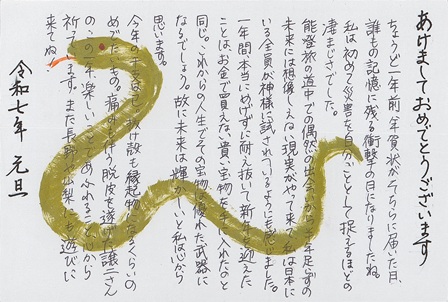 あけましておめでとうございます
ちょうど一年前、年賀状がそちらに届いた日、
誰もの記憶に残る衝撃の日になりましたね。
私は初めて災害を自分ごととして捉えるほどの
凄まじさでした。
能登旅の道中での偶然の出会いから一年足らずの
未来には想像しえない現実がやって来て、私は日本に
いる全員が神様に試されているようにも思いました。
一年間本当にめげずに耐え抜いて新年を迎えた
ことはお金で買えない貴い宝物を手に入れたのと
同じ。これからの人生でその宝物は優れた武器に
なるでしょう。故に未来は輝かしいと私は心から
思います。
今年の干支は抜け殻も縁起物になるくらいの
めでたいもの。痛みも伴う脱皮を遂げた譲二さん
のこの一年、楽しいことあふれる心から
祈ってます。また長野や山梨にも遊びに
来てね。
令和七年 元旦